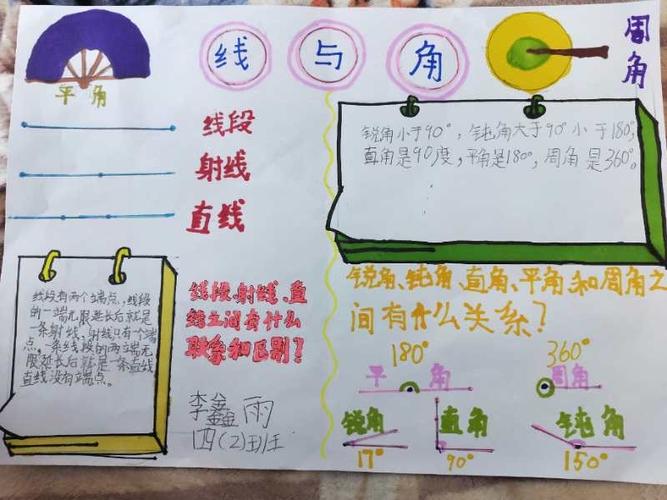 线与角
平角
周角
线段
射线
直线
锐角小于90°,钝角大于90°小于180°,
直角是90度,平角是180°,周角是360°。
线段有两个端点,线段
的一端无限延长后就是
一条射线,射线只有个端
点。一条线段的两端无
限延长后就是一条直线
直线没有端点。
线段、射线、直
线之间有什么
联系和区别?
李鑫雨
四(2)班
锐角、钝角、直角、平角、和周角之
间有什么关系?
180°
平角
360°
周角
锐角
17°
直角
90°
钝角
150°